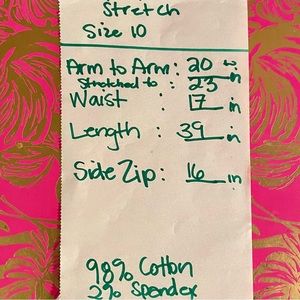 Stretch
Size 10
Arm to Arm: 20 in
Stretched to: 23 in
Waist : 17 in
Length: 39 in
Side Zip: 16 in
98% Cotton
2% Spandex